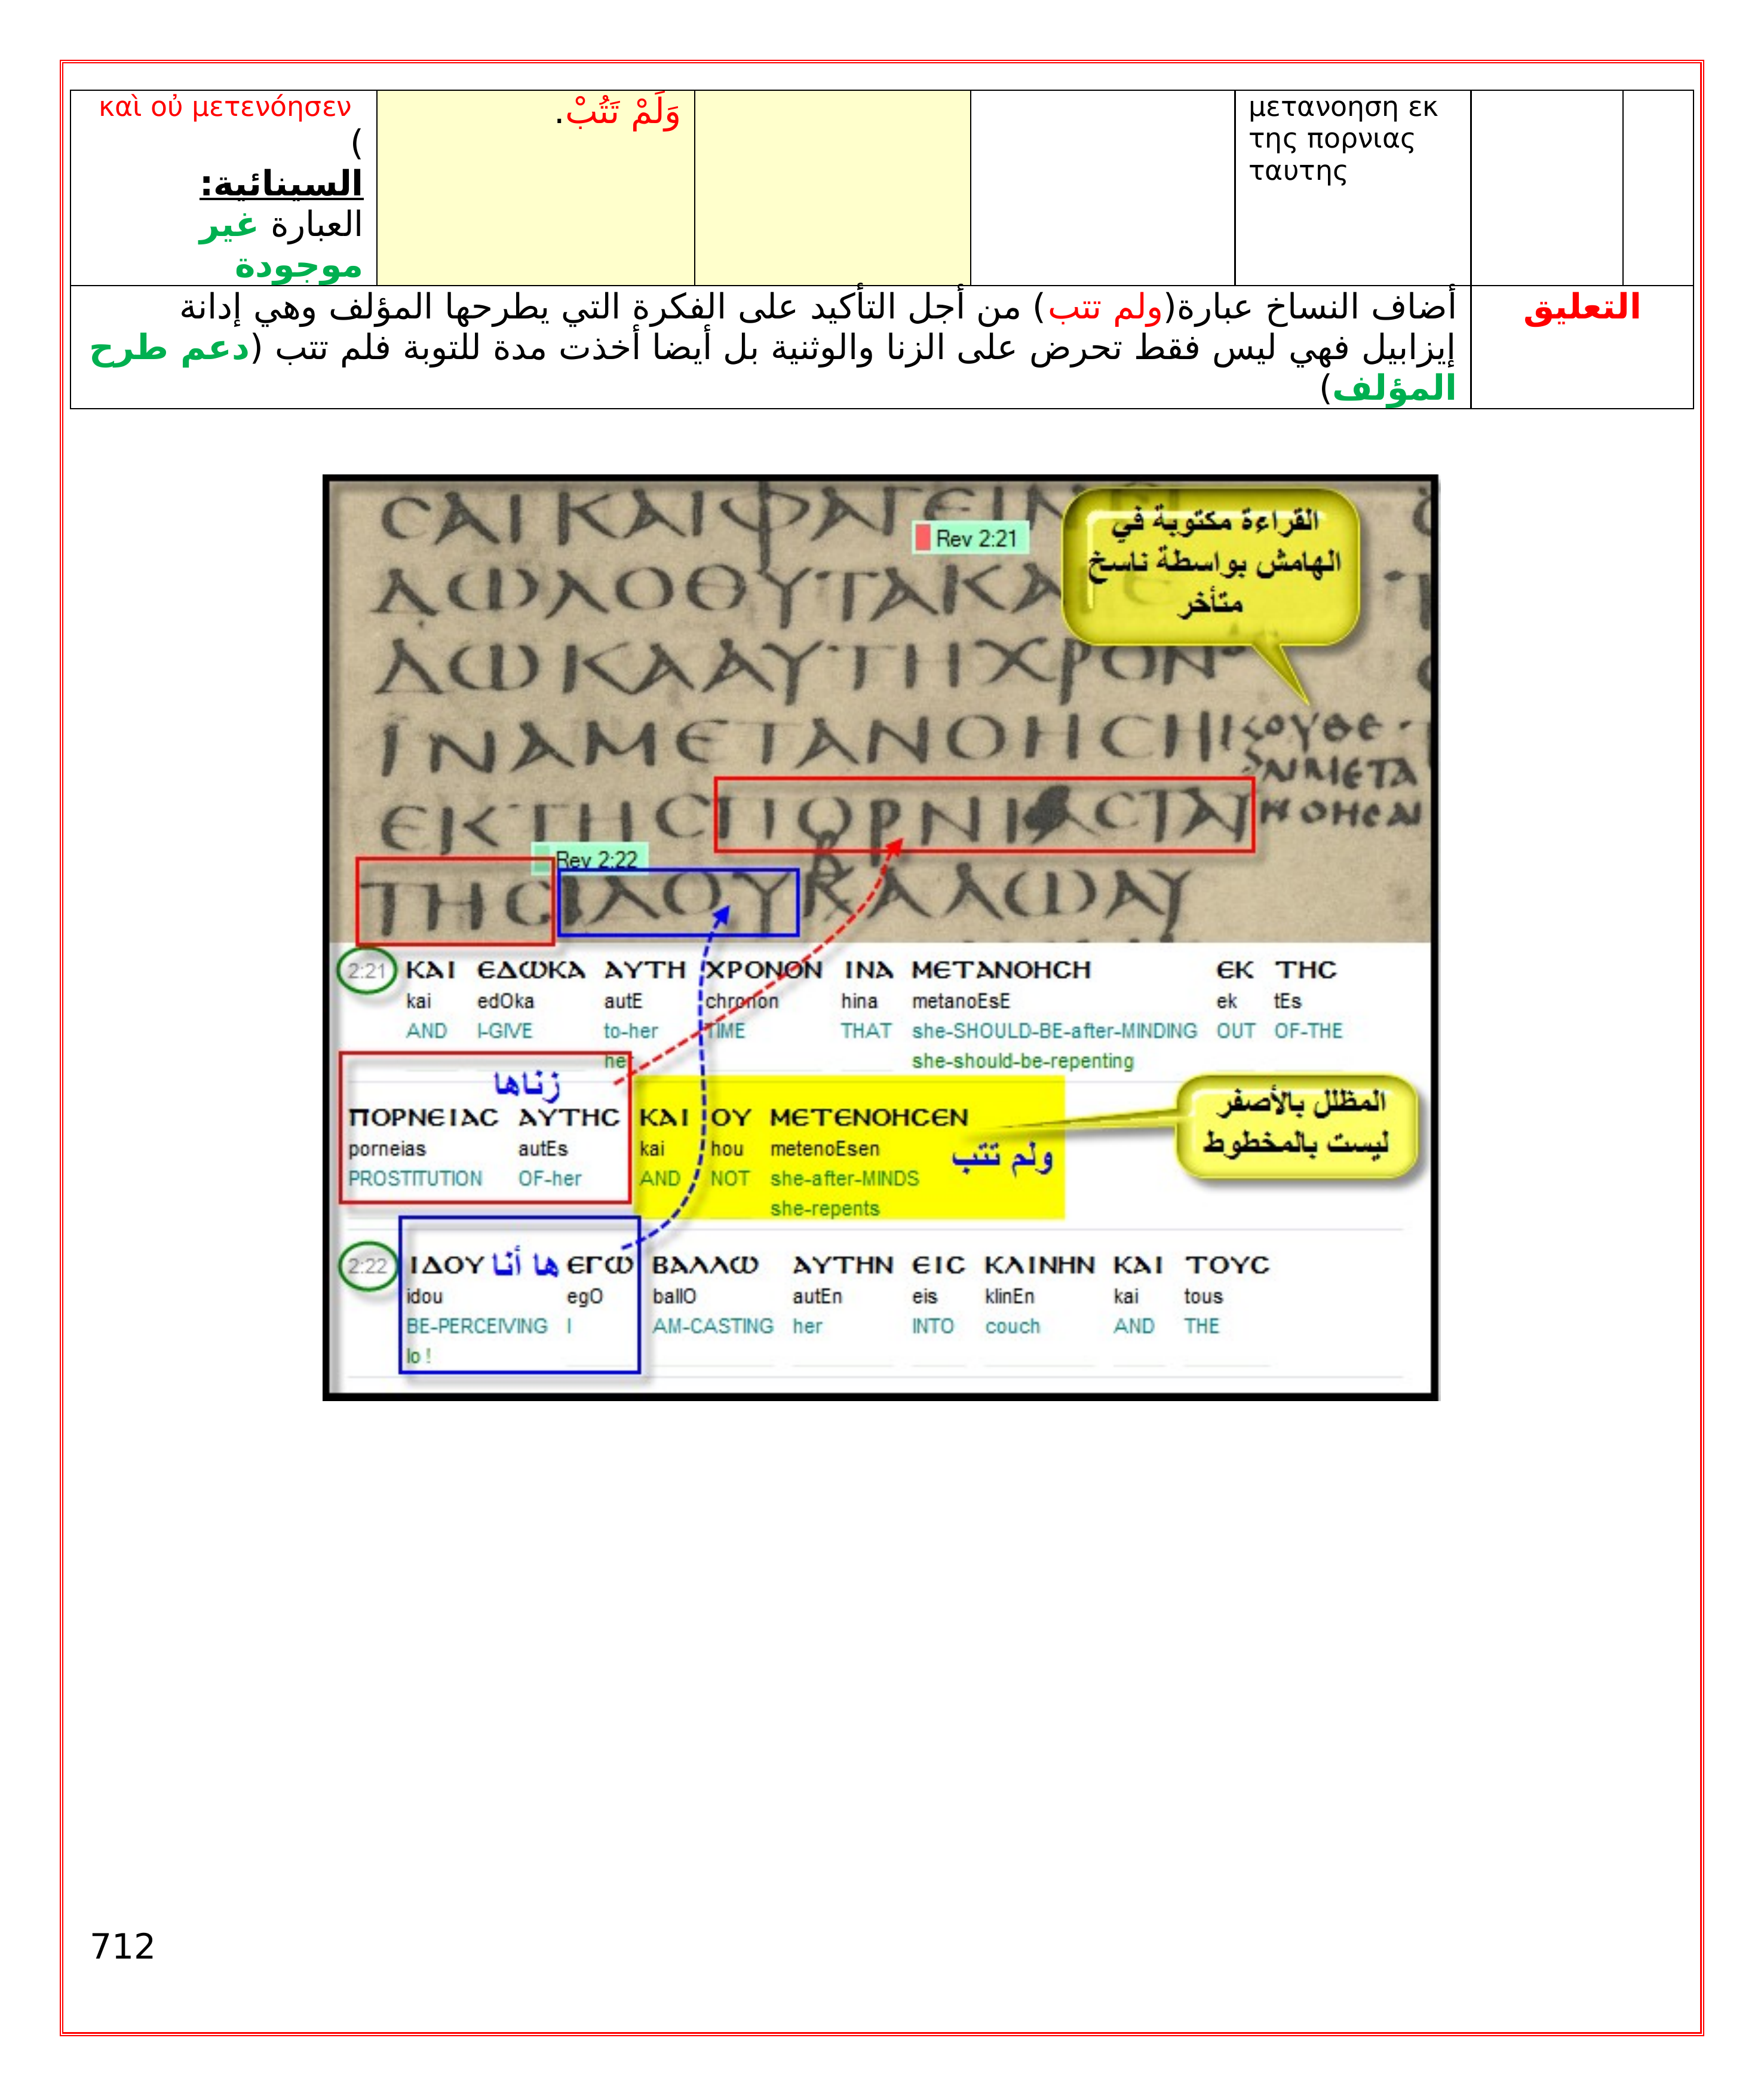 μετανοηση εκ
της πορνιας
ταυτης
وَلَمْ تَتُبْ.
καὶ οὐ μετενόησεν
(
السينائية:
العبارة غير
موجودة
التعليق
أضاف النساخ عبارة(ولم تتب) من أجل التأكيد على الفكرة التي يطرحها المؤلف وهي إدانة
إيزابيل فهي ليس فقط تحرض على الزنا والوثنية بل أيضا أخذت مدة للتوبة فلم تتب (دعم طرح
المؤلف)
القراءة مكتوبة في
الهامش بواسطة ناسخ
متأخر
Rev 2:21
ΙΝΑΜΕΤΑΝΟΗCΗ
ΕΚΤΗCΠΟΡΝΙΑCΤΑΥ
Rev 2:22
ΤΗCΙΔΟΥΒΑΛΛΩΑΥ
2:21 ΚΑΙ ΕΔΩΚΑ ΑΥΤΗ ΧΡΟΝΟΝ ΙΝΑ ΜΕΤΑΝΟΗCΗ ΕΚ ΤΗC
kai edOka autE chronon hina metanoEsE ek tEs
AND I-GIVE to-her TIME THAT she-SHOULD-BE-after-MINDING OUT OF-THE
her she-should-be-repenting
زناها
ΠΟΡΝΕΙΑC ΑΥΤΗC ΚΑΙ ΟΥ ΜΕΤΕΝΟΗCΕΝ
porneias autEs kai hou metenoEsen
PROSTITUTION OF-her AND NOT she-after-MINDS
she-repents
ولم تتب
المظلل بالأصفر
ليست بالمخطوط
2:22 ΙΔΟΥ ها أنا ΕΓΩ ΒΑΛΛΩ ΑΥΤΗΝ ΕΙC ΚΛΙΝΗΝ ΚΑΙ ΤΟΥC
idou egO ballO autEn eis klinEn kai tous
BE-PERCEIVING I AM-CASTING her INTO couch AND THE
lo !
712